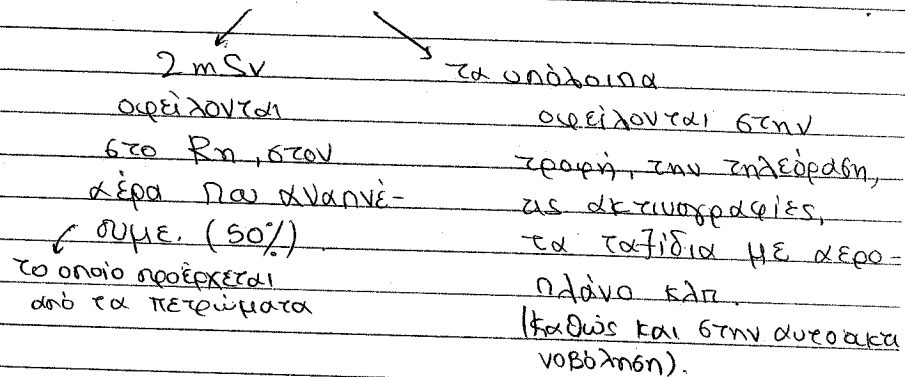 2 mSv
οφείλονται
στο Rn, στον
αέρα που αναπνέ-
ουμε. (50%)
το οποίο προέρχεται
από τα πετρώματα
τα υπόλοιπα
οφείλονται στην
τροφή, την τηλεόραση,
τις ακτινογραφίες,
τα ταξίδια με αερο-
πλάνο κλπ.
(καθώς και στην αυτοακτι
νοβόληση).